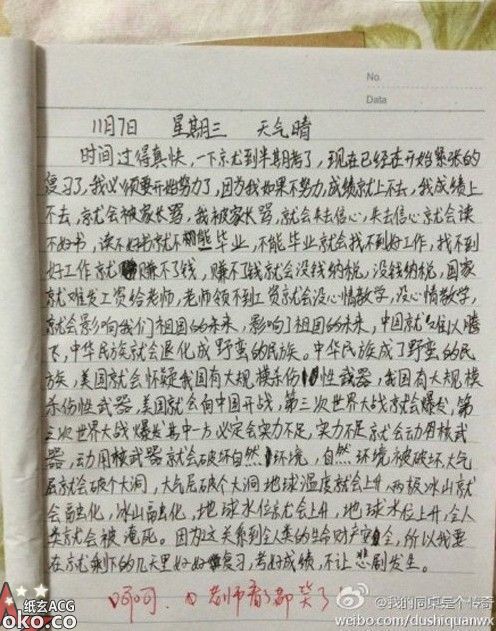 No.
Data
11月7日 星期三 天气晴
时间过得真快,一下就到半期考了,现在已经在开始紧张的
复习了,我必须要开始努力了,因为我如果不努力,成绩就上不去,我成绩上
不去,就会被家长骂,我被家长骂,就会失去信心,失去信心就会读
不好书,读不好书就不能毕业,不能毕业就会找不到好工作,找不到
好工作就赚不了钱,赚不了钱就会没钱纳税,没钱纳税,国家
就难发工资给老师,老师领不到工资就会没心情教学,没心情教学,
就会影响我们祖国的未来,影响了祖国的未来,中国就难以腾
飞,中华民族就会退化成野蛮的民族。中华民族成了野蛮的民
族,美国就会怀疑我国有大规模杀伤性武器,我国有大规模
杀伤性武器,美国就会向中国开战,第三次世界大战就会爆发,第
三次世界大战爆发其中一方必定会实力不足,实力不足就会动用核武
器,动用核武器就会破坏自然环境,自然环境被破坏,大气
层就会破个大洞,大气层破个大洞地球温度就会上升,两极冰山就
会融化,冰山融化,地球水位就会上升,地球水位上升,全人
类就会被淹死。因为这关系到全人类的生命财产安全,所以我要
在就剩下的几天里好好复习,考好成绩,不让悲剧发生。
呵呵. 老师看了都笑了
@我的同桌是个传奇
weibo.com/dushiquanwx
纸玄ACG
oko.co